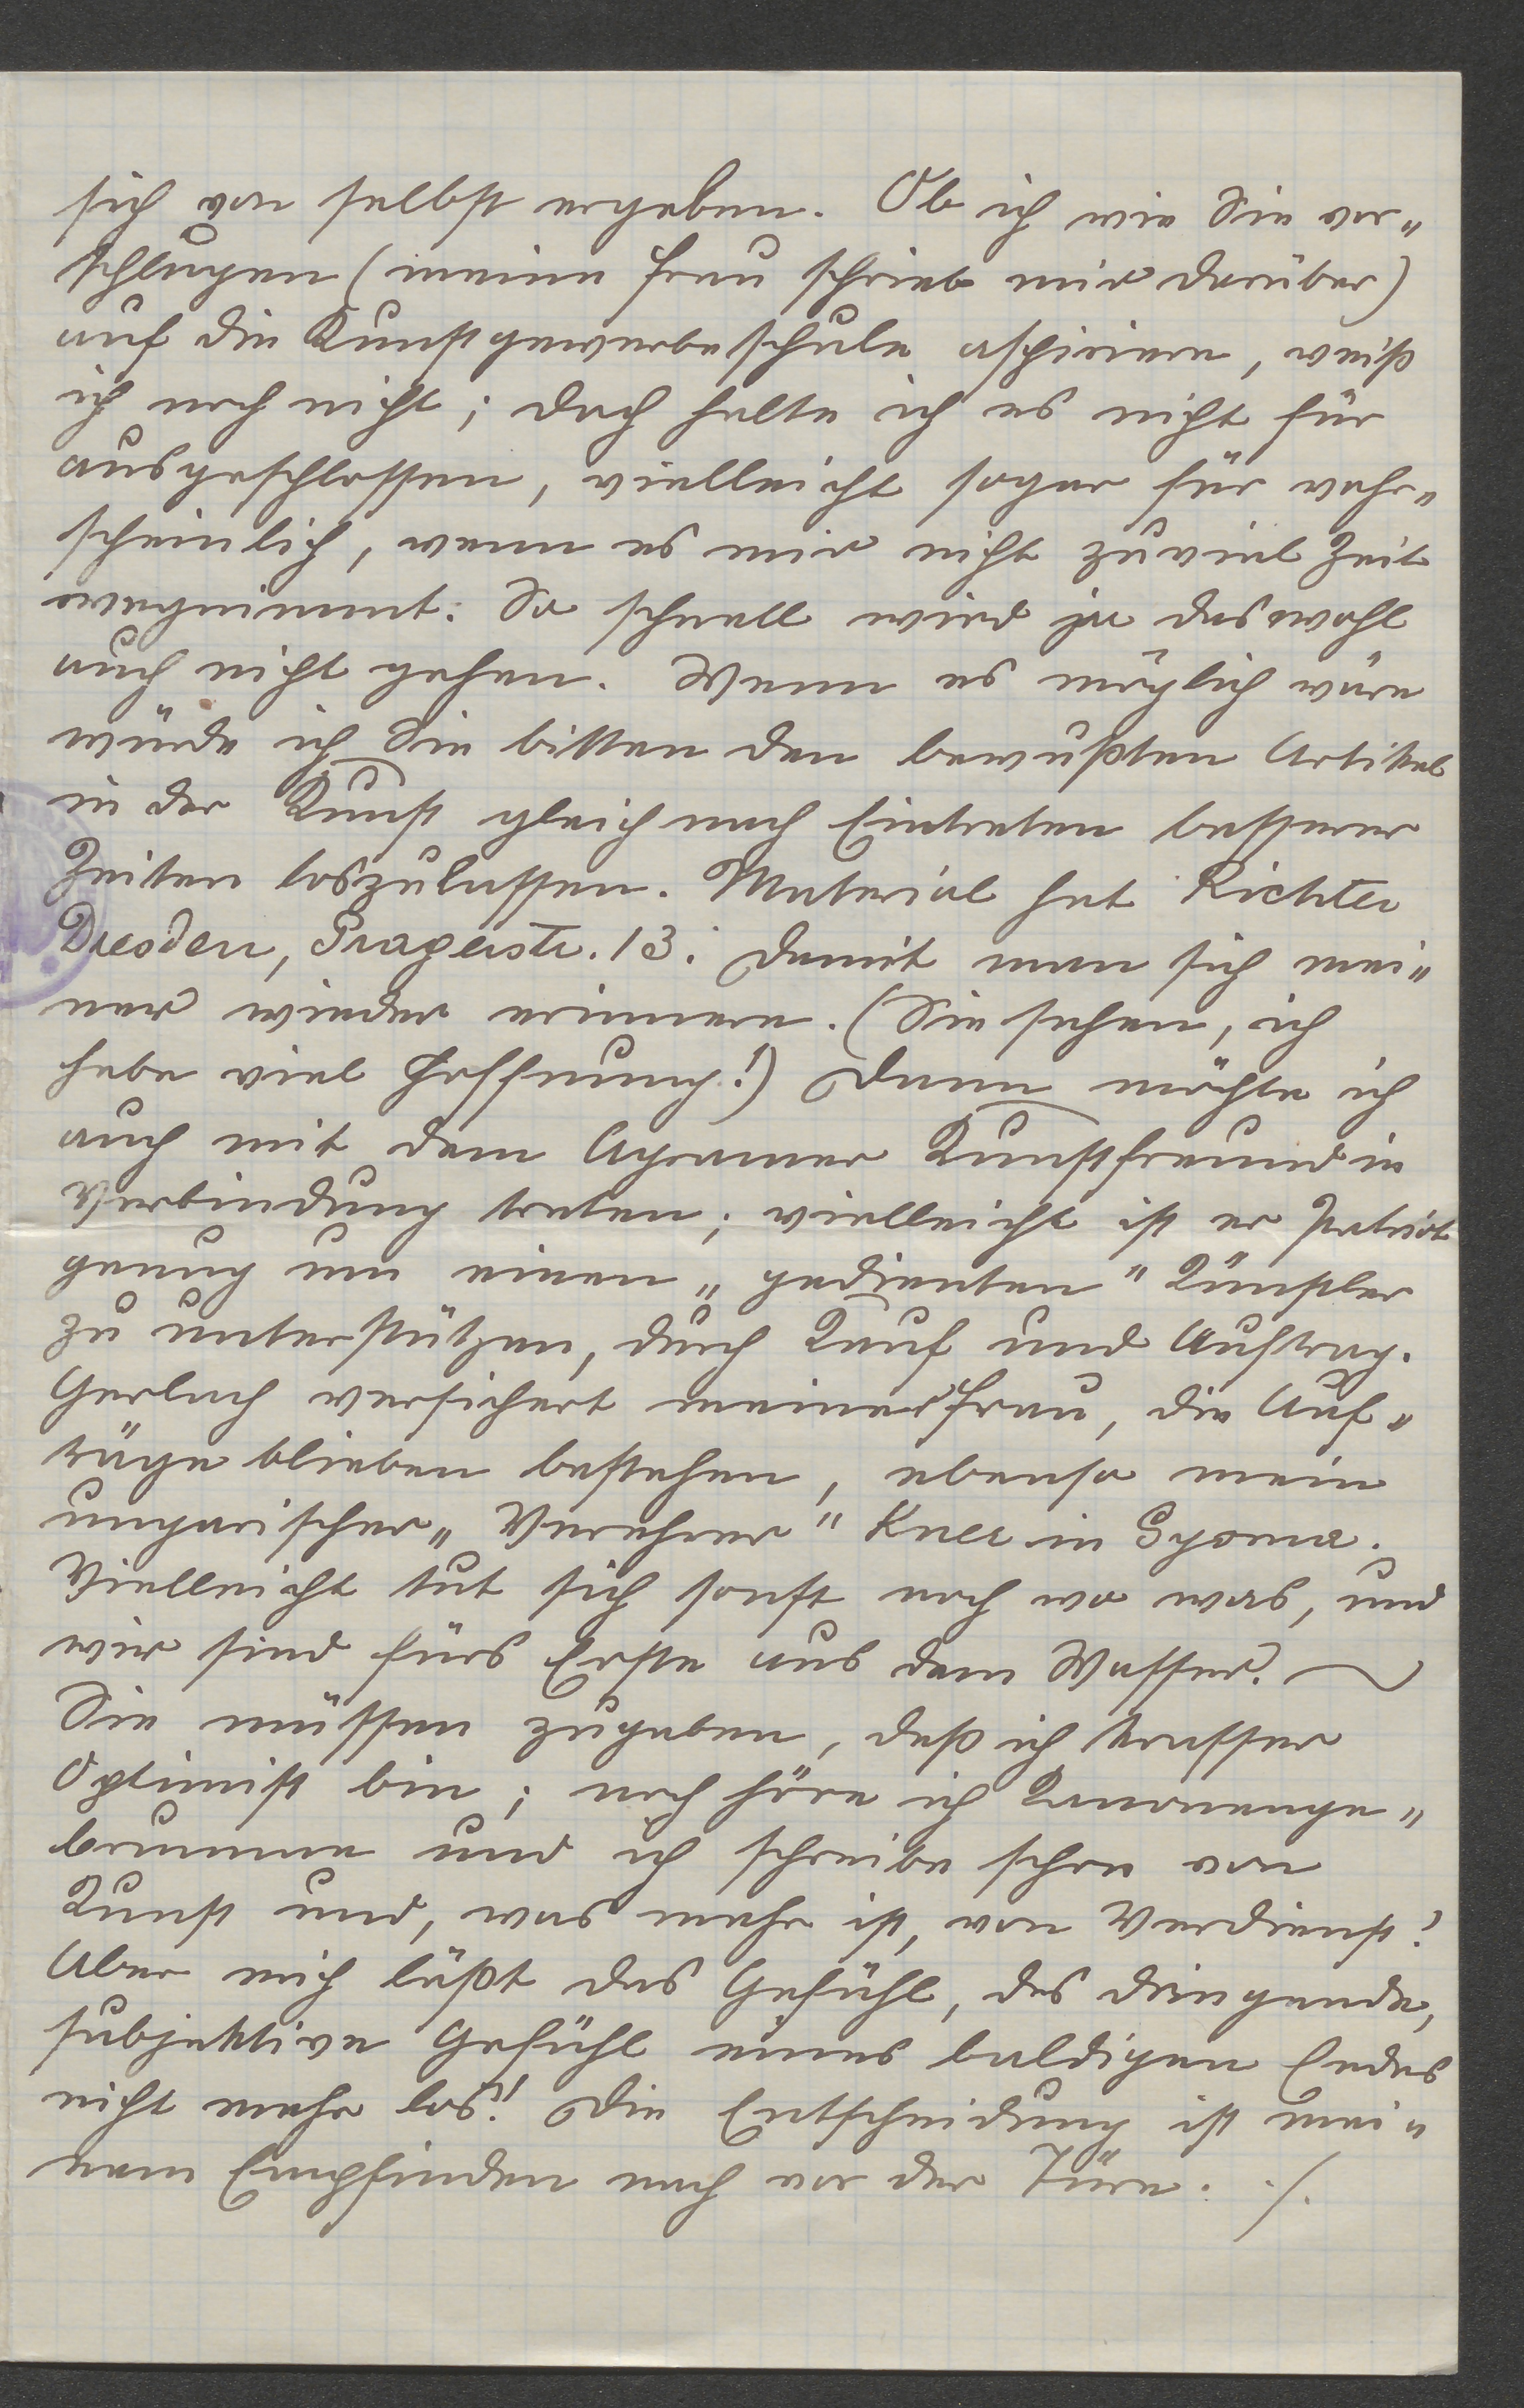 sich von selbst ergeben. Ob ich wie Sie vor„
schlugen (meine Frau schrieb mir darüber)
auf die Kunstgewerbeschule aspiriere, weiß
ich noch nicht; doch halte ich es nicht für
ausgeschlossen, vielleicht sogar für wahr„
scheinlich, wenn es mir nicht zuviel Zeit
wegnimmt. So schnell wird ja das wohl
auch nicht gehen. Wenn es möglich wäre
würde ich Sie bitten den bewußten Artikel
in der Kunst gleich nach Eintreten besserer
Zeiten loszulassen. Material hat Richter
Dresden, Pragerstr. 13. Damit man sich mei„
ner wieder erinnere. (Sie sehen, ich
habe viel Hoffnung!) Dann möchte ich
auch mit dem Agramer Kunstfreund in
Verbindung treten; vielleicht ist er Patriot
genug um einen „gedienten" Künstler
zu unterstützen, durch Kauf und Auftrag.
Gerlach versichert meiner Frau, die Auf„
träge blieben bestehen, ebenso mein
ungarischer „Verehrer" Kner in Gyoma.
Vielleicht tut sich sonst noch wo was, und
wir sind fürs Erste aus dem Wasser. —
Sie müssen zugeben, daß ich krasser
Optimist bin; noch höre ich Kanonenge„
brumme und ich schreibe schon von
Kunst und, was mehr ist, von Verdienst!
Aber mich läßt das Gefühl, das dringende,
subjektive Gefühl eines baldigen Endes
nicht mehr los! Die Entscheidung ist mei„
nem Empfinden nach vor der Türe. ./.